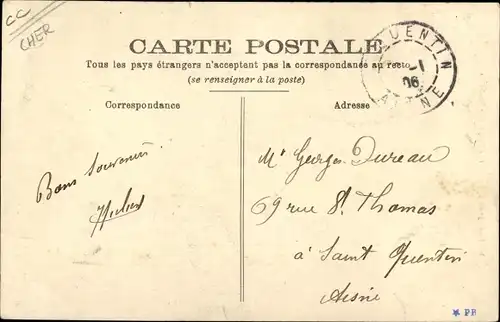 CC
CHER
QUENTIN
-1
06
AISNE
CARTE POSTALE
Tous les pays étrangers n'acceptent pas la correspondance au recto
(se renseigner à la poste)
Correspondance
Adresse
Bons Souvenirs
Mr Georges Dureau
69 rue St Thomas
à Saint Quentin
Aisne
* PR